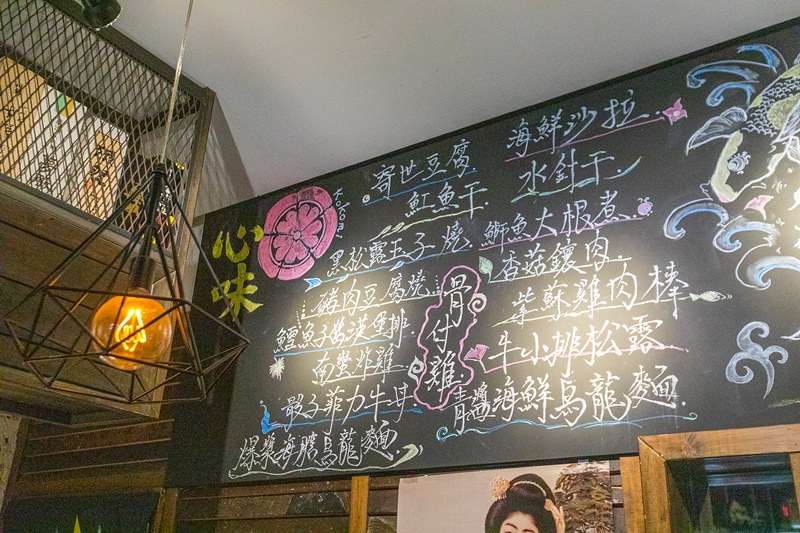 心味
Kokomi
寄世豆腐
海鮮沙拉
魟魚干
水針干
黑松露玉子燒
鰤魚大根煮
豬肉豆腐燒
香菇鑲肉
骨付雞
紫蘇雞肉棒
鱈魚子起司漢堡排
牛小排松露
南蠻炸雞
骰子菲力牛丼
青醬海鮮烏龍麵
爆漿海膽烏龍麵